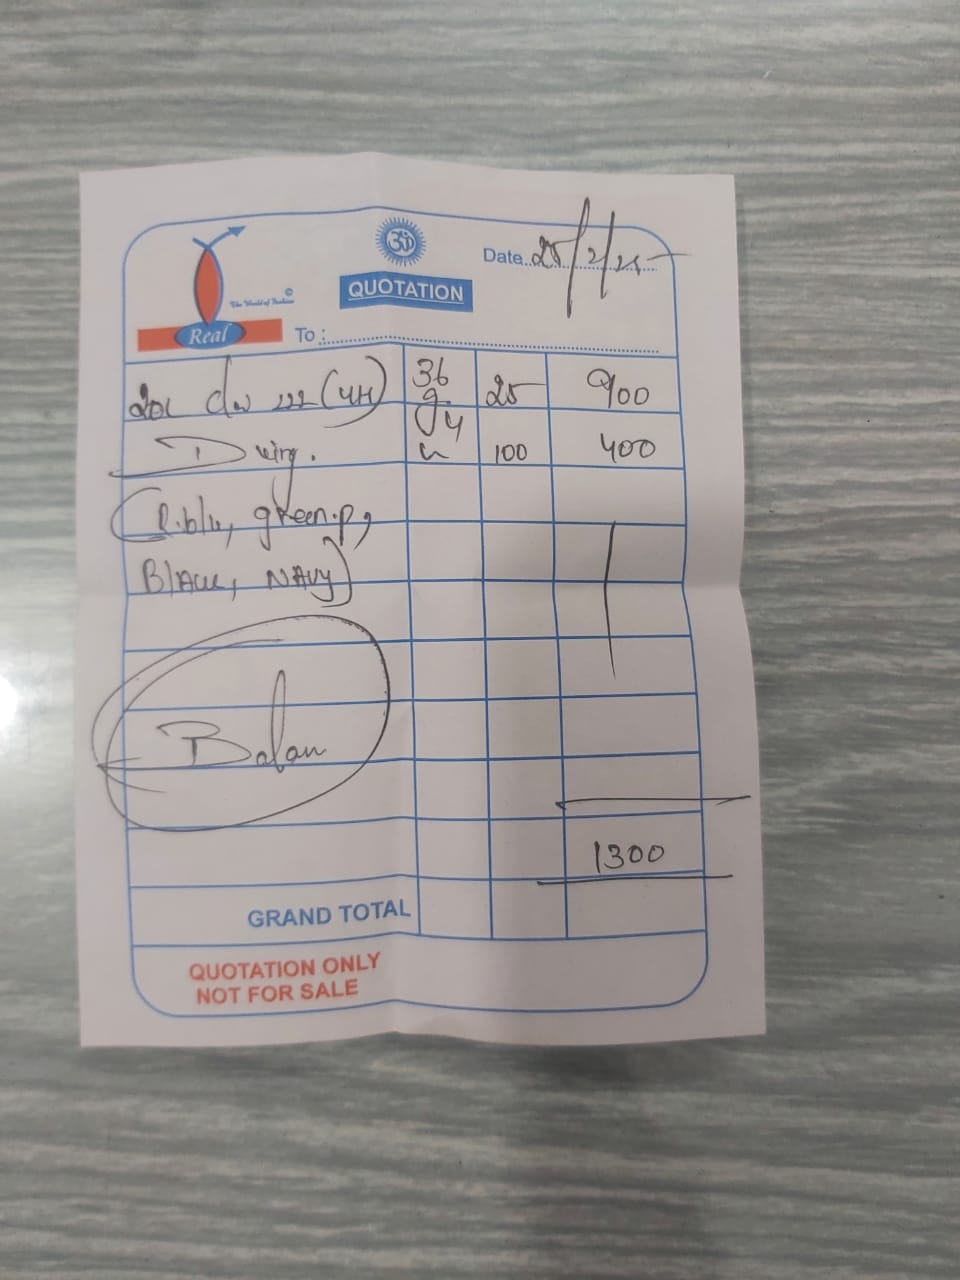 QUOTATION
Date 25/2/25
The World of Fashion ©
Real
To :
201 (4H) 36 25 900
g
4
100 400
(R.blu, green.p,
Black, NAVY)
1300
GRAND TOTAL
QUOTATION ONLY
NOT FOR SALE